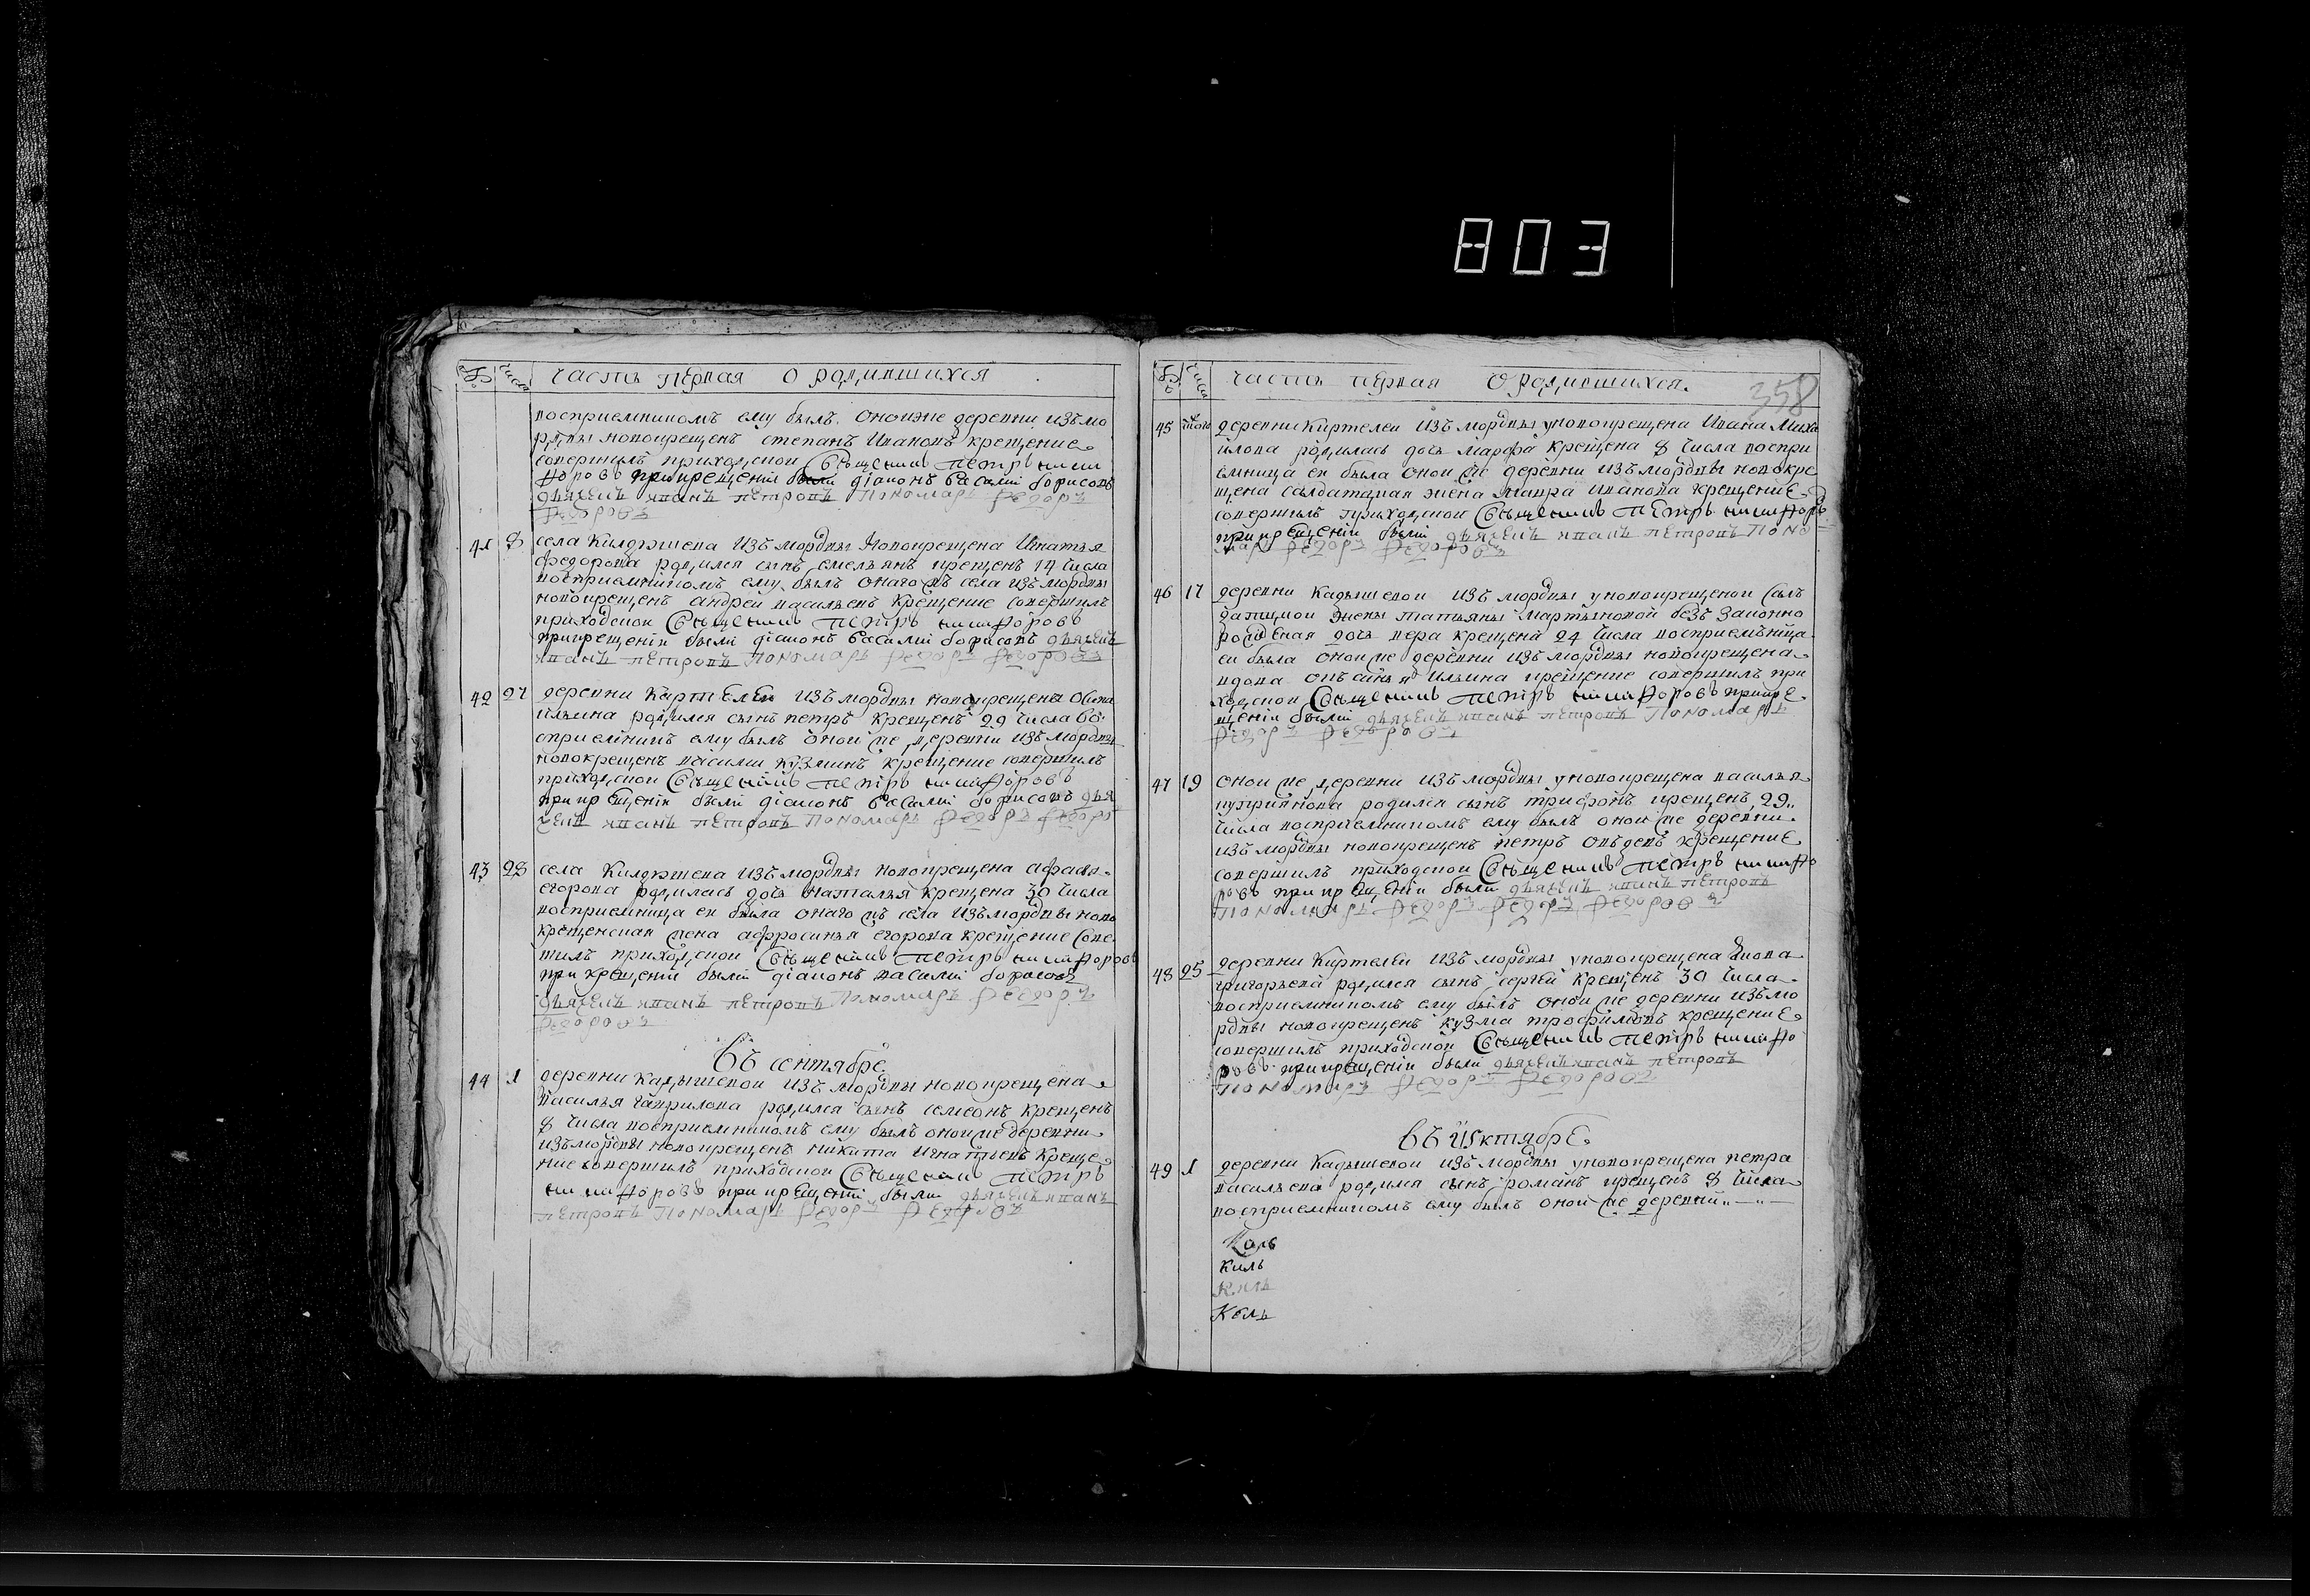 803
№ числа часть первая о родившихся
восприемником ему был оной же деревни из мо
рдвы новокрещен степан Иванов крещение
совершил приходской Священник Петр Ники
форов при крещении были диакон Василий борисов
дьячек иван петров Пономарь Федор
Федоров
41 8 села Килдюшева из мордвы Новокрещена Игнатья
федорова родился сын емельян крещен 14 числа
восприемником ему был онаго ж села из мордвы
новокрещен андрей васильев крещение совершил
приходской Священник Петр Никифоров
при крещении были диакон Василий борисов дьячек
иван петров Пономарь Федор Федоров
42 27 деревни Киртелей из мордвы новокрещена
ильина родился сын петр крещен 29 числа во
сприемник ему был оной же деревни из мордвы
новокрещен василий кузмин крещение совершил
приходской Священник Петр Никифоров
при крещении были диакон Василий борисов дья
чек иван петров Пономарь Федор Федоро
43 28 села Килдюшева из мордвы новокрещена
егорова родилась дочь наталья крещена 30 числа
восприемница ей была онаго ж села из мордвы ново
крещенская жена афросинья егорова крещение сове
шил приходской Священник Петр Никифоров
при крещении были диакон василий борисов
дьячек иван петров Пономарь Федор
Федоров
Въ сентябре
44 1 деревни Кадышевой из мордвы новокрещена
василья гаврилова родился сын семеон крещен
8 числа восприемником ему был оной же деревни
из мордвы новокрещен никита игнатьев креще
ние совершил приходской Священник Петр
Никифоров при крещении были дьячек иван
петров Пономарь Федор Федоров
№ числа часть первая о родившихся. 358
45 деревни Киртелей из мордвы у новокрещена Ивана Миха
илова родилась дочь марфа крещена 8 числа воспри
емница ей была оной же деревни из мордвы новокре
щена салдатцкая жена мавра иванова крещение
совершил приходской Священник Петр Никифоров
при крещении были дьячек иван петров Поно
марь Федор Федоров
46 17 деревни Кадышевой из мордвы у новокрещеной сал
датцкой жены татьяны мартыновой без законно
рожденая дочь вера крещена 24 числа восприемница
ей была оной же деревни из мордвы новокрещена
вдова ильина крещение совершил при
ходской Священник Петр Никифоров при кре
щении были дьячек иван петров Пономарь
Федор Федоров
47 19 оной же деревни из мордвы у новокрещена василья
куприянова родился сын трифон крещен 29
числа восприемником ему был оной же деревни
из мордвы новокрещен петр авдеев крещение
совершил приходской Священник Петр Никифо
ров при крещении были дьячек иван петров
Пономарь Федор Федор Федоров
48 25 деревни Киртелей из мордвы у новокрещена
григорьева родился сын сергей крещен 30 числа
восприемником ему был оной же деревни из мо
рдвы новокрещен кузма трофимов крещение
совершил приходской Священник Петр Никифо
ров при крещении были дьячек иван петров
Пономарь Федор Федоров
Въ октябре
49 1 деревни Кадышевой из мордвы у новокрещена петра
васильева родился сын роман крещен 8 числа
восприемником ему был оной же деревни